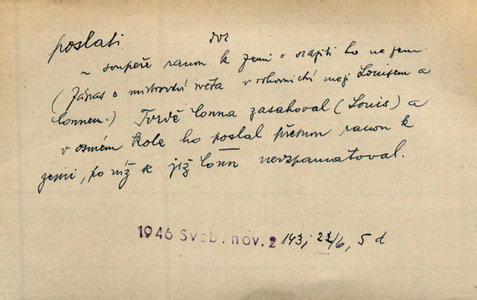 poslati dok
~ soupeře ranou k zemi = srazit ho na zem.
(Zápas o mistrovství světa v rohování mezi Louisem a
Connem.) Tvrdě Conna zasahoval (Louis) a
v osmém kole ho poslal přesnou ranou k
zemi, po níž se již Conn nevzpamatoval.
1946 Svob. nov. 2 143, 22/6, 5 d